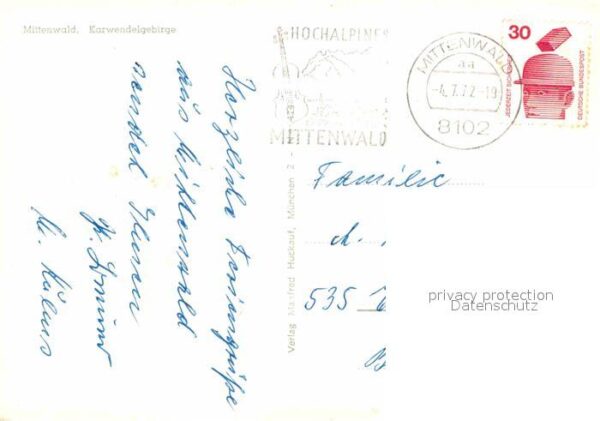 Mittenwald, Karwendelgebirge
HOCHALPINES
MITTENWALD
MITTENWALD
aa
-4.7.72-19
8102
30
JEDERZEIT SICHERHEIT
DEUTSCHE BUNDESPOST
Herzliche Feriengrüße
aus Mittenwald
sendet Ihnen
Verlag Manfred Huckauf, München 2
Familie
535
privacy protection
Datenschutz